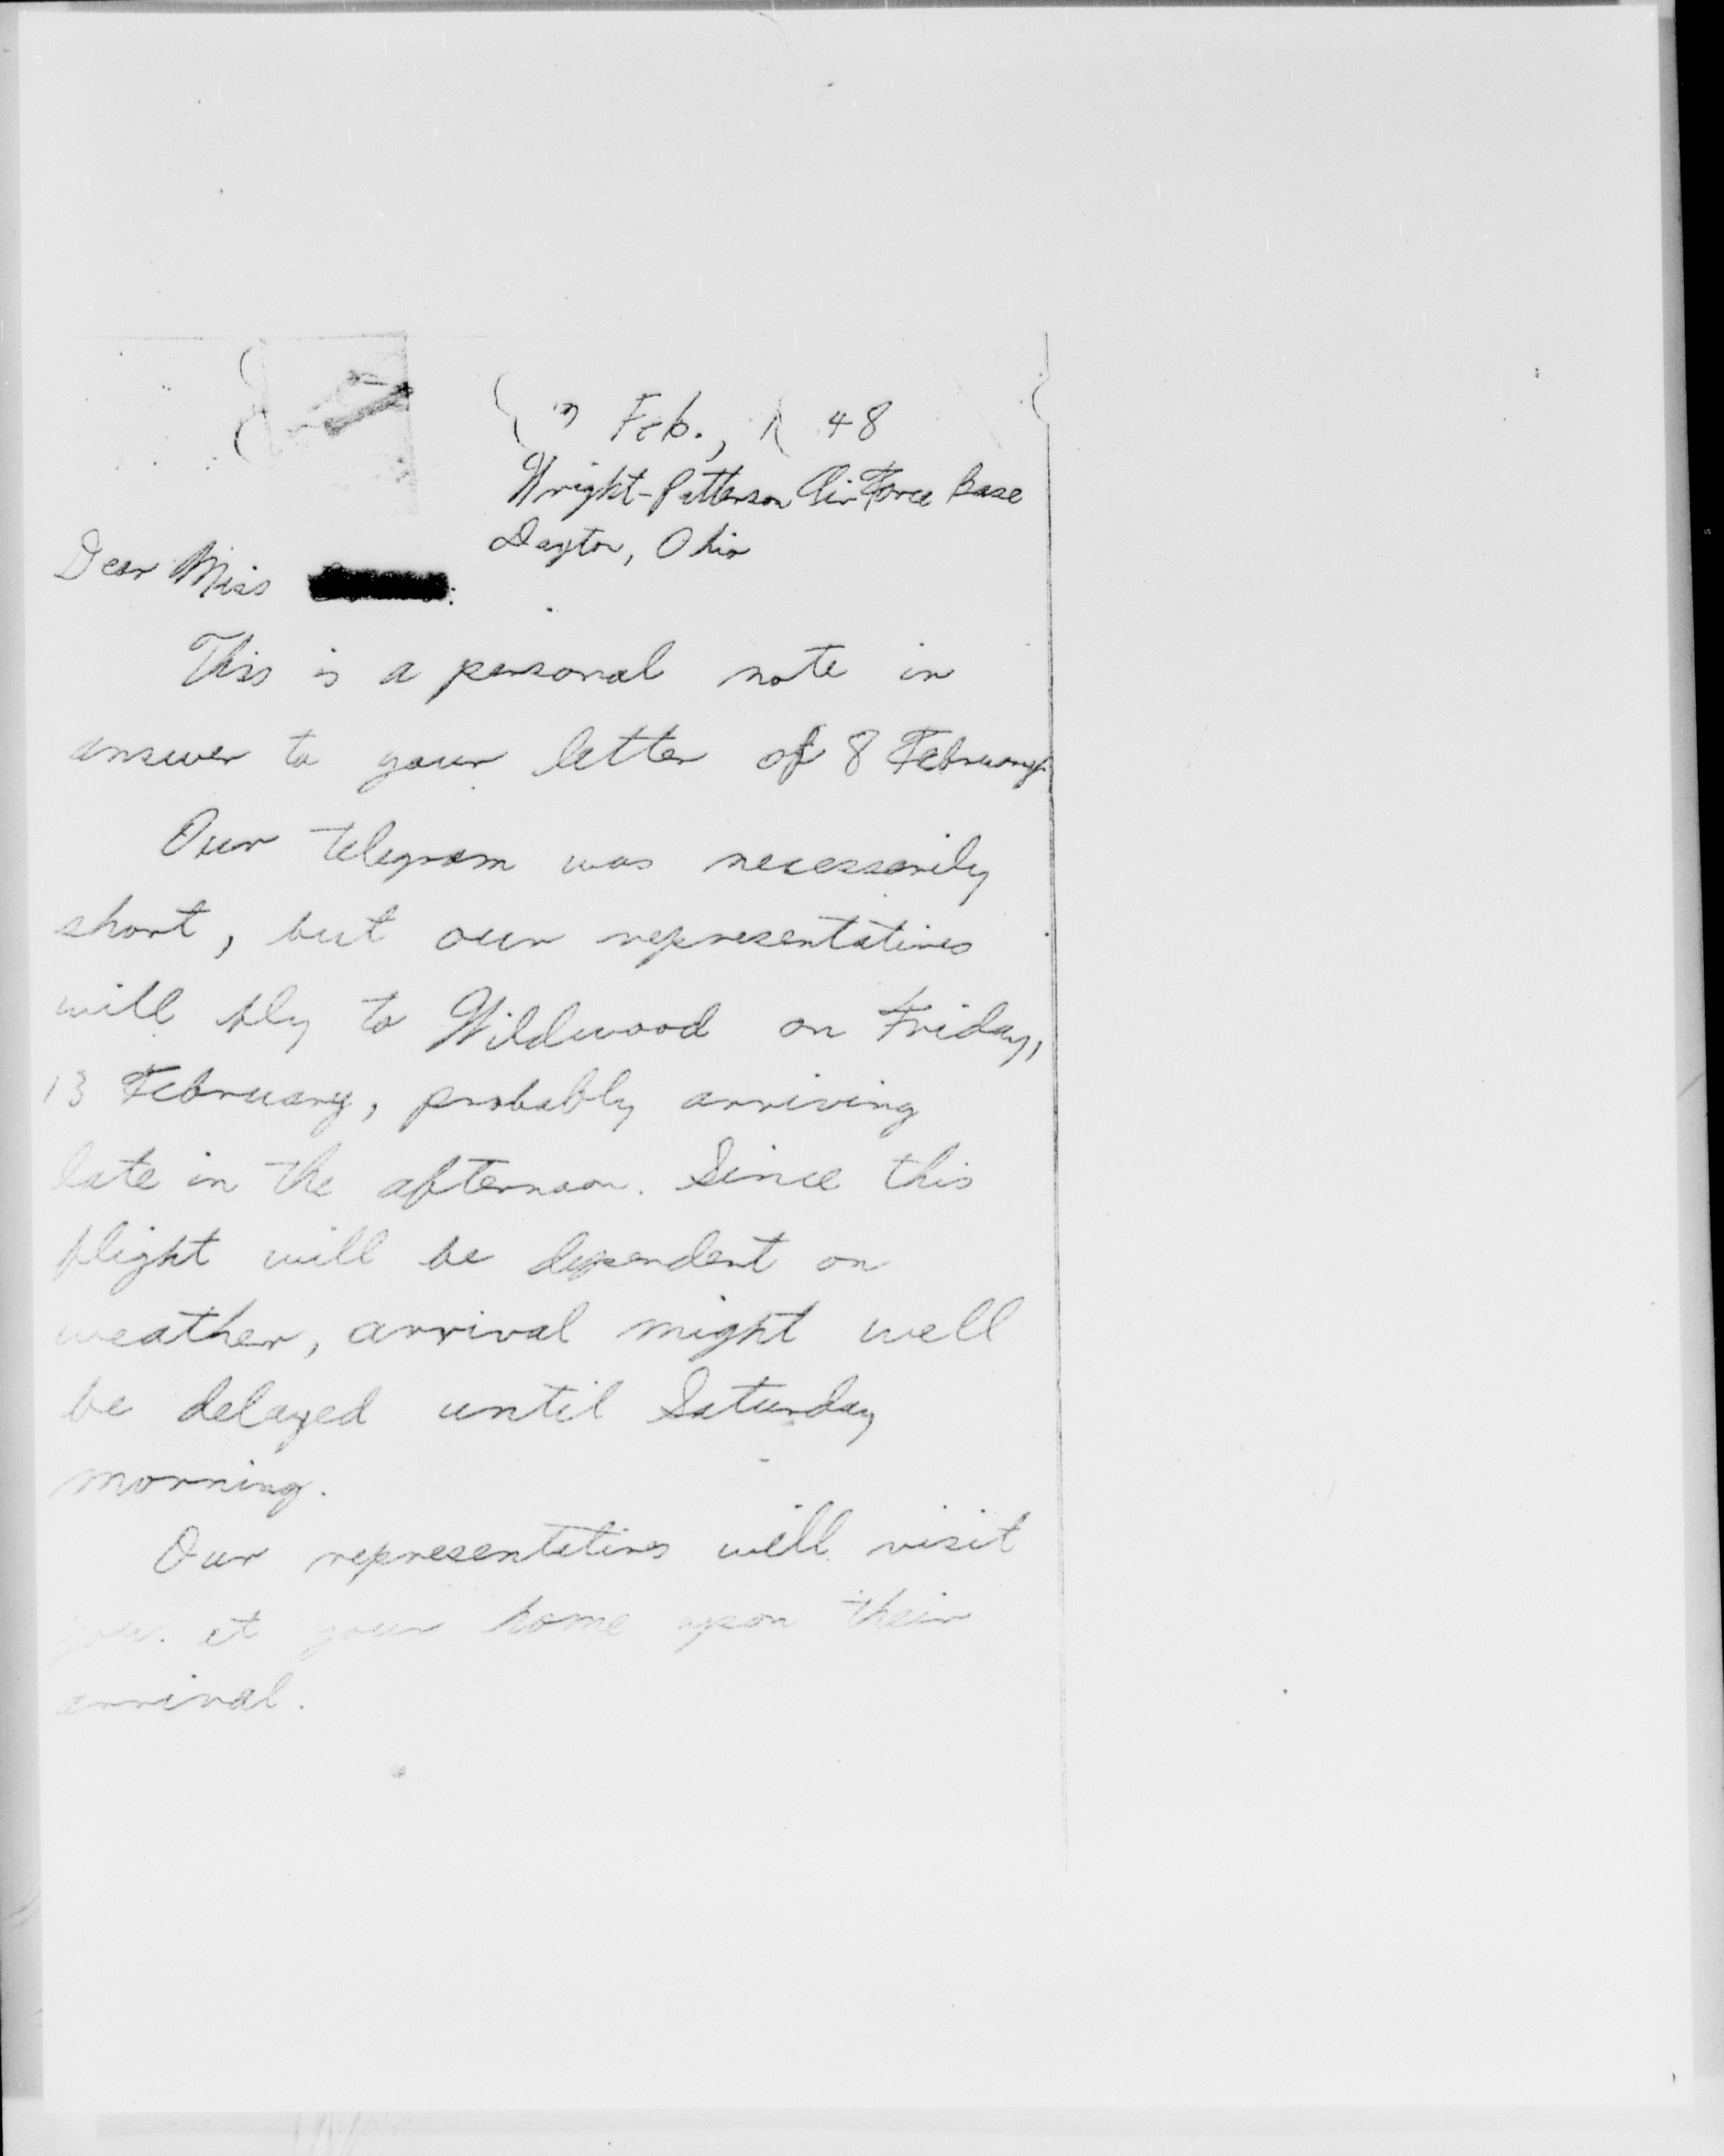 Feb., 48
Wright-Patterson Air Force Base
Dayton, Ohio
Dear Miss :
This is a personal note in
answer to your letter of 8 February.
Our telegram was necessarily
short, but our representatives
will fly to Wildwood on Friday,
13 February, probably arriving
late in the afternoon. Since this
flight will be dependent on
weather, arrival might well
be delayed until Saturday
morning.
Our representatives will visit
you at your home upon their
arrival.